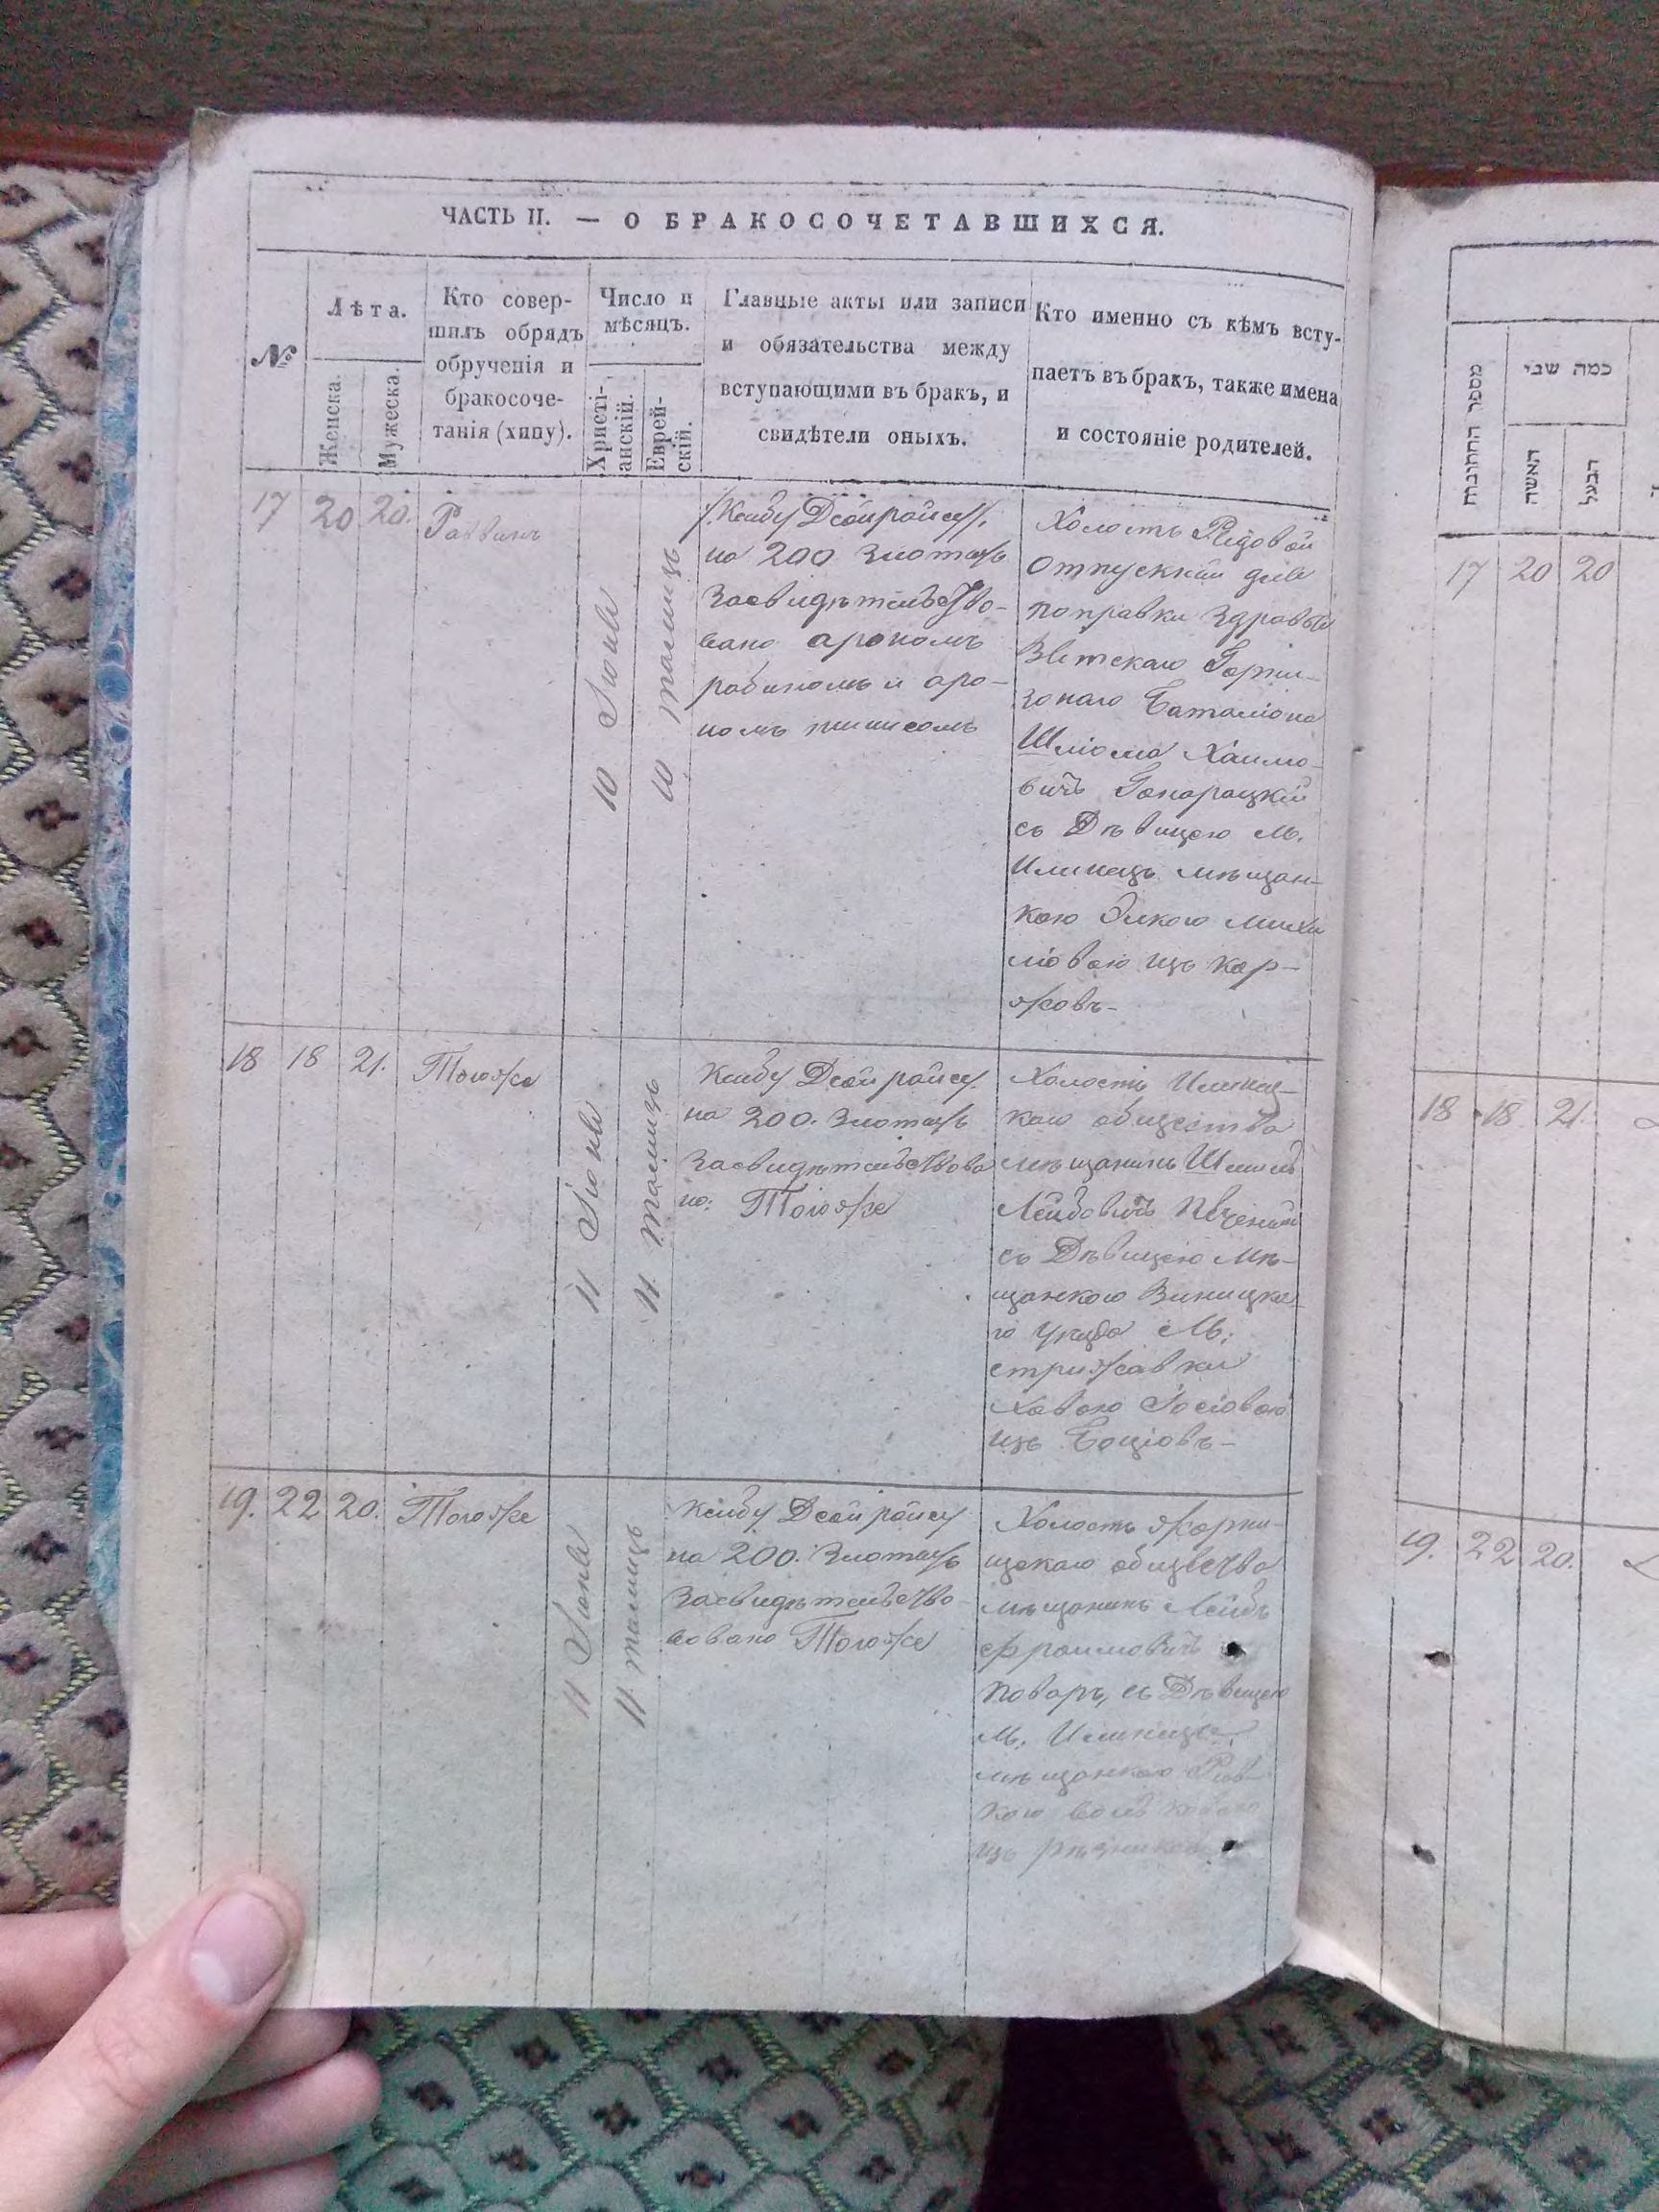 ЧАСТЬ II. — О БРАКОСОЧЕТАВШИХСЯ.
№
Лѣта.
Женска.
Мужеска.
Кто совер-
шилъ обрядъ
обрученія и
бракосоче-
танія (хупу).
Число и
мѣсяцъ.
Христі-
анскій.
Еврей-
скій.
Главные акты или записи
и обязательства между
вступающими въ бракъ, и
свидѣтели оныхъ.
Кто именно съ кѣмъ всту-
паетъ въ бракъ, также имена
и состояніе родителей.
17 20 20. Раввинъ
10 Іюня
10 томицъ
Ксибу Деойрайсы
на 200 злотыхъ
засвидѣтельство-
вано арономъ
рабиномъ и аро-
номъ
Холостъ Рядовой
отпускной для
поправки здравья
Вятскаго Горни-
зонаго Баталіона
Шліома Хаимо-
вичъ
съ Дѣвицею м.
Илинецъ мѣщан-
кою Элкою Михи
ліовою изъ Кор-
жовъ-
18 18 21. Тогоже
11 Іюня
11 томицъ
Ксибу Деойрайсы
на 200. злотыхъ
засвидѣтельствова
но: Тогоже
Холостъ Илинец-
каго общества
мѣщанинъ
Лейбовичъ
съ Дѣвицею мѣ-
щанкою Виницка-
го уѣзда м.
стрижавки
Хавою Іосіовою
изъ Боціовъ-
19. 22 20. Тогоже
11 Іюня
11 томицъ
Ксибу Деойрайсы
на 200. злотыхъ
засвидѣтельство
вовано Тогоже
Холостъ жорни-
щскаго общества
мѣщанинъ Лейбъ
Фроимовичъ
Поваръ, съ Дѣвицею
м. Илинецъ
мѣщанкою Рив-
кою
изъ
מספר החתונות
כמה שני
האשה
הבעל
17 20 20
18 18 21.
19. 22 20.